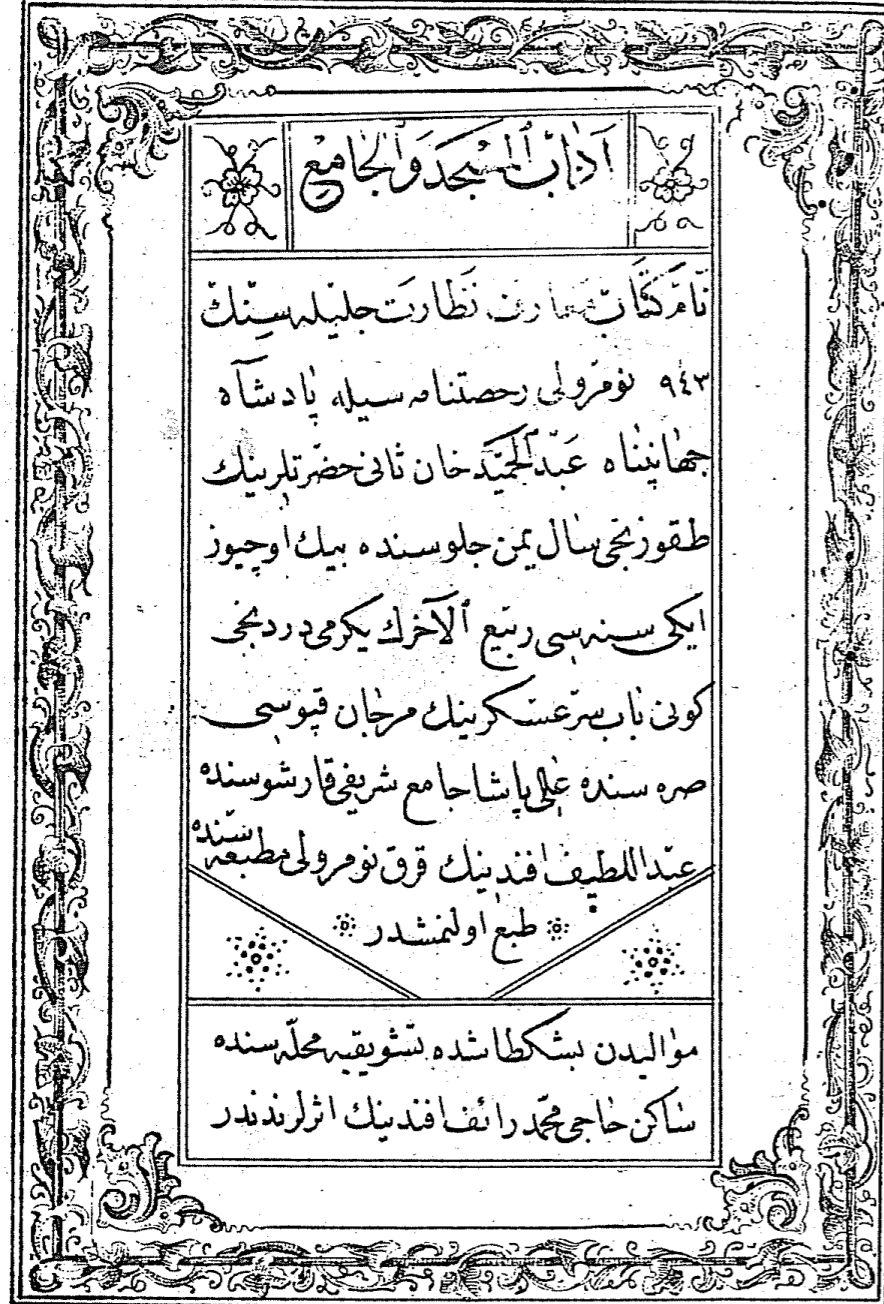 آداب المسجد والجامع
نام كتاب معارف نظارت جليله سينك
٩٤٣ نومرولى رخصتنامه سيله پادشاه
جهانپناه عبد الحميد خان ثانى حضرتلرينك
طقوزنجى سال يمن جلوسنده بيك اوچيوز
ايكى سنه سى ربيع الآخرك يكرمى دردنجى
كونى باب سر عسكرينك مرجان قپوسى
صره سنده على پاشا جامع شريفى قارشوسنده
عبد اللطيف افندينك قرق نومرولى مطبعه سنده
طبع اولنمشدر
مواليدن بشكطاشده تشويقيه محله سنده
ساكن حاجى محمد رائف افندينك اثرلرندندر